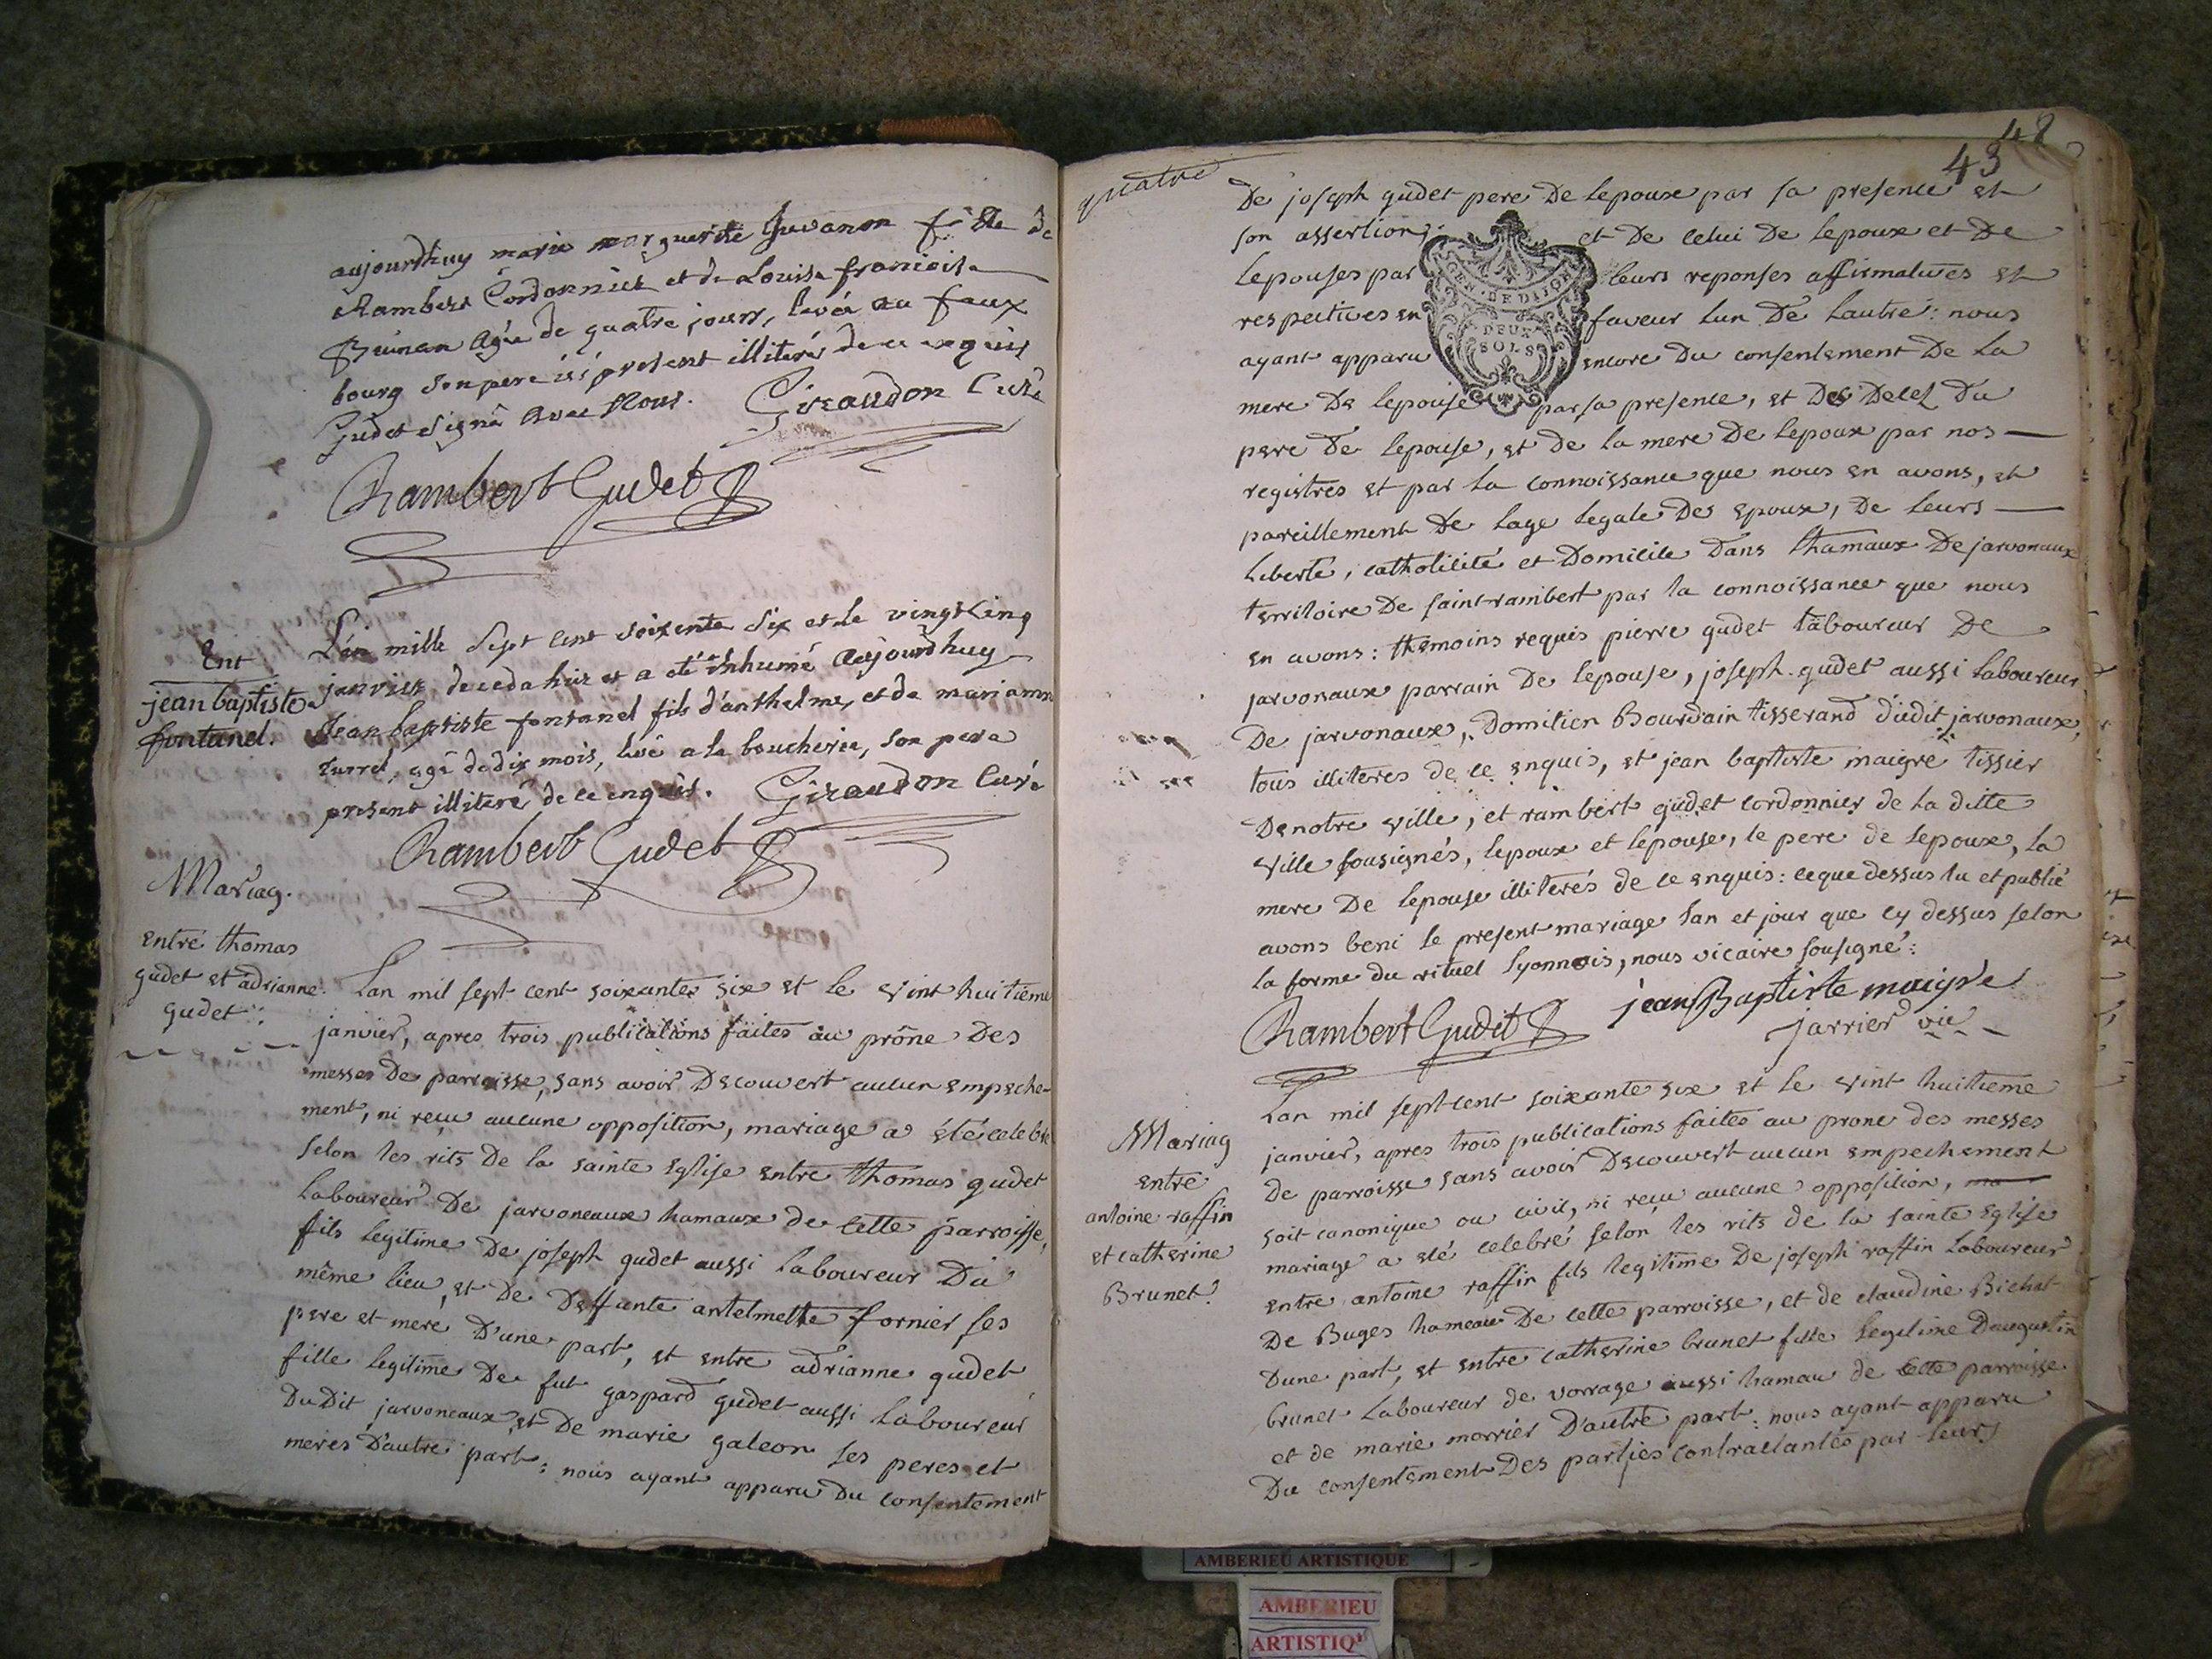 aujourdhuy marie marguerite Juvanon fille de
Rambert Cordonnier et de Louise francoise
agée de quatre jours, levée au faux
bourg son pere ici present illiteré de ce enquis
Gudet signé avec Nous. Giraudon Curé
Rambert Gudet
Ent
jean baptiste
fontanel.
L'an mille Sept cent soixente Six et le vingt cinq
janvier deceda hier et a été inhumé aujourdhuy
Jean baptiste fontanel fils d'anthelme, et de mariamne
turrel, agé de dix mois, levé a la boucherie, son pere
present illiteré de ce enquis. Giraudon Curé
Rambert Gudet
Mariag.
entre thomas
gudet et adrianne
gudet:
Lan mil sept cent soixante six et le vint huitieme
janvier, apres trois publications faites au prône Des
messes De parroisse, sans avoir Decouvert aucun empeche-
ment, ni reçu aucune opposition, mariage a été celebré
selon les rits De la sainte Eglise entre thomas gudet
laboureur De jarvoneaux hamaux de cette parroisse,
fils legitime De joseph gudet aussi laboureur Du
même lieu, et De Deffunte antelmette fornier ses
pere et mere D'une part, et entre adrianne gudet
fille legitime De fut gaspard gudet aussi laboureur
DuDit jarvoneaux, et De marie galeon ses peres et
meres D'autre part: nous ayant apparu Du consentement
quatre
48
43
De joseph gudet pere De lepoux par sa presence et
son assertion; et De celui De lepoux et De
lepouses par leurs reponses affirmatives et
respectives en faveur lun De lautre: nous
ayant apparu encore Du consentement De la
mere De lepouse par sa presence, et Des Decez Du
pere De lepouse, et De la mere De lepoux par nos
registres et par la connoissance que nous en avons, et
pareillement De lage legale Des epoux, De leurs
liberté, catholicité et Domicile Dans lhamaux De jarvonaux
territoire De saint rambert par la connoissance que nous
en avons: themoins requis pierre gudet laboureur De
jarvonaux parrain De lepouse, joseph gudet aussi laboureur
De jarvonaux, Domitien Bourdain tisserand dudit jarvonaux,
tous illiteres de ce enquis, et jean baptiste maigre tissier
De notre ville, et rambert gudet cordonnier de la ditte
ville sousignés, lepoux et lepouse, le pere de lepoux, la
mere De lepouse illiterés de ce enquis: ce que dessus lu et publié
avons beni le present mariage lan et jour que cy dessus selon
la forme du rituel lyonnois, nous vicaire sousigné:
Rambert Gudet jean Baptiste maigre
jarrier vic
GEN. DE DIJON
DEUX
SOLS
Mariag
entre
antoine raffin
et catherine
Brunet.
Lan mil sept cent soixante six et le vint huitieme
janvier, apres trois publications faites au prone des messes
De parroisse sans avoir Decouvert aucun empechement
soit canonique ou civil, ni reçu aucune opposition,
mariage a eté celebré selon les rits de la sainte Eglise
entre antoine raffin fils legitime De joseph raffin laboureur
De Buges hameau De cette parroisse, et de claudine Bichat
Dune part, et entre catherine brunet fille legitime Daugustin
brunet laboureur de vorrage aussi hamau de cette parroisse
et de marie morrier D'autre part: nous ayant apparu
Du consentement Des parties contractantes par leurs
AMBERIEU ARTISTIQUE
AMBERIEU
ARTISTIQ